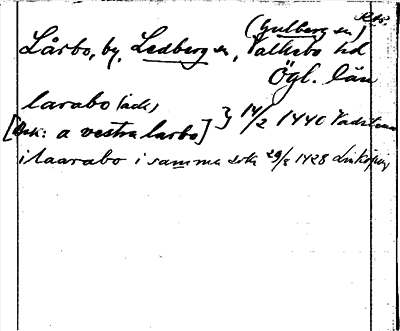 Rdr.
(Gullberg sn)
Lårbo, by, Ledberg sn, Valkebo hd
Ögl. län
larabo (ack)
[Ack: a vestra larbo] } 14/2 1440 Vadstena
i laarabo i samma sokn 29/2 1428 Linköping